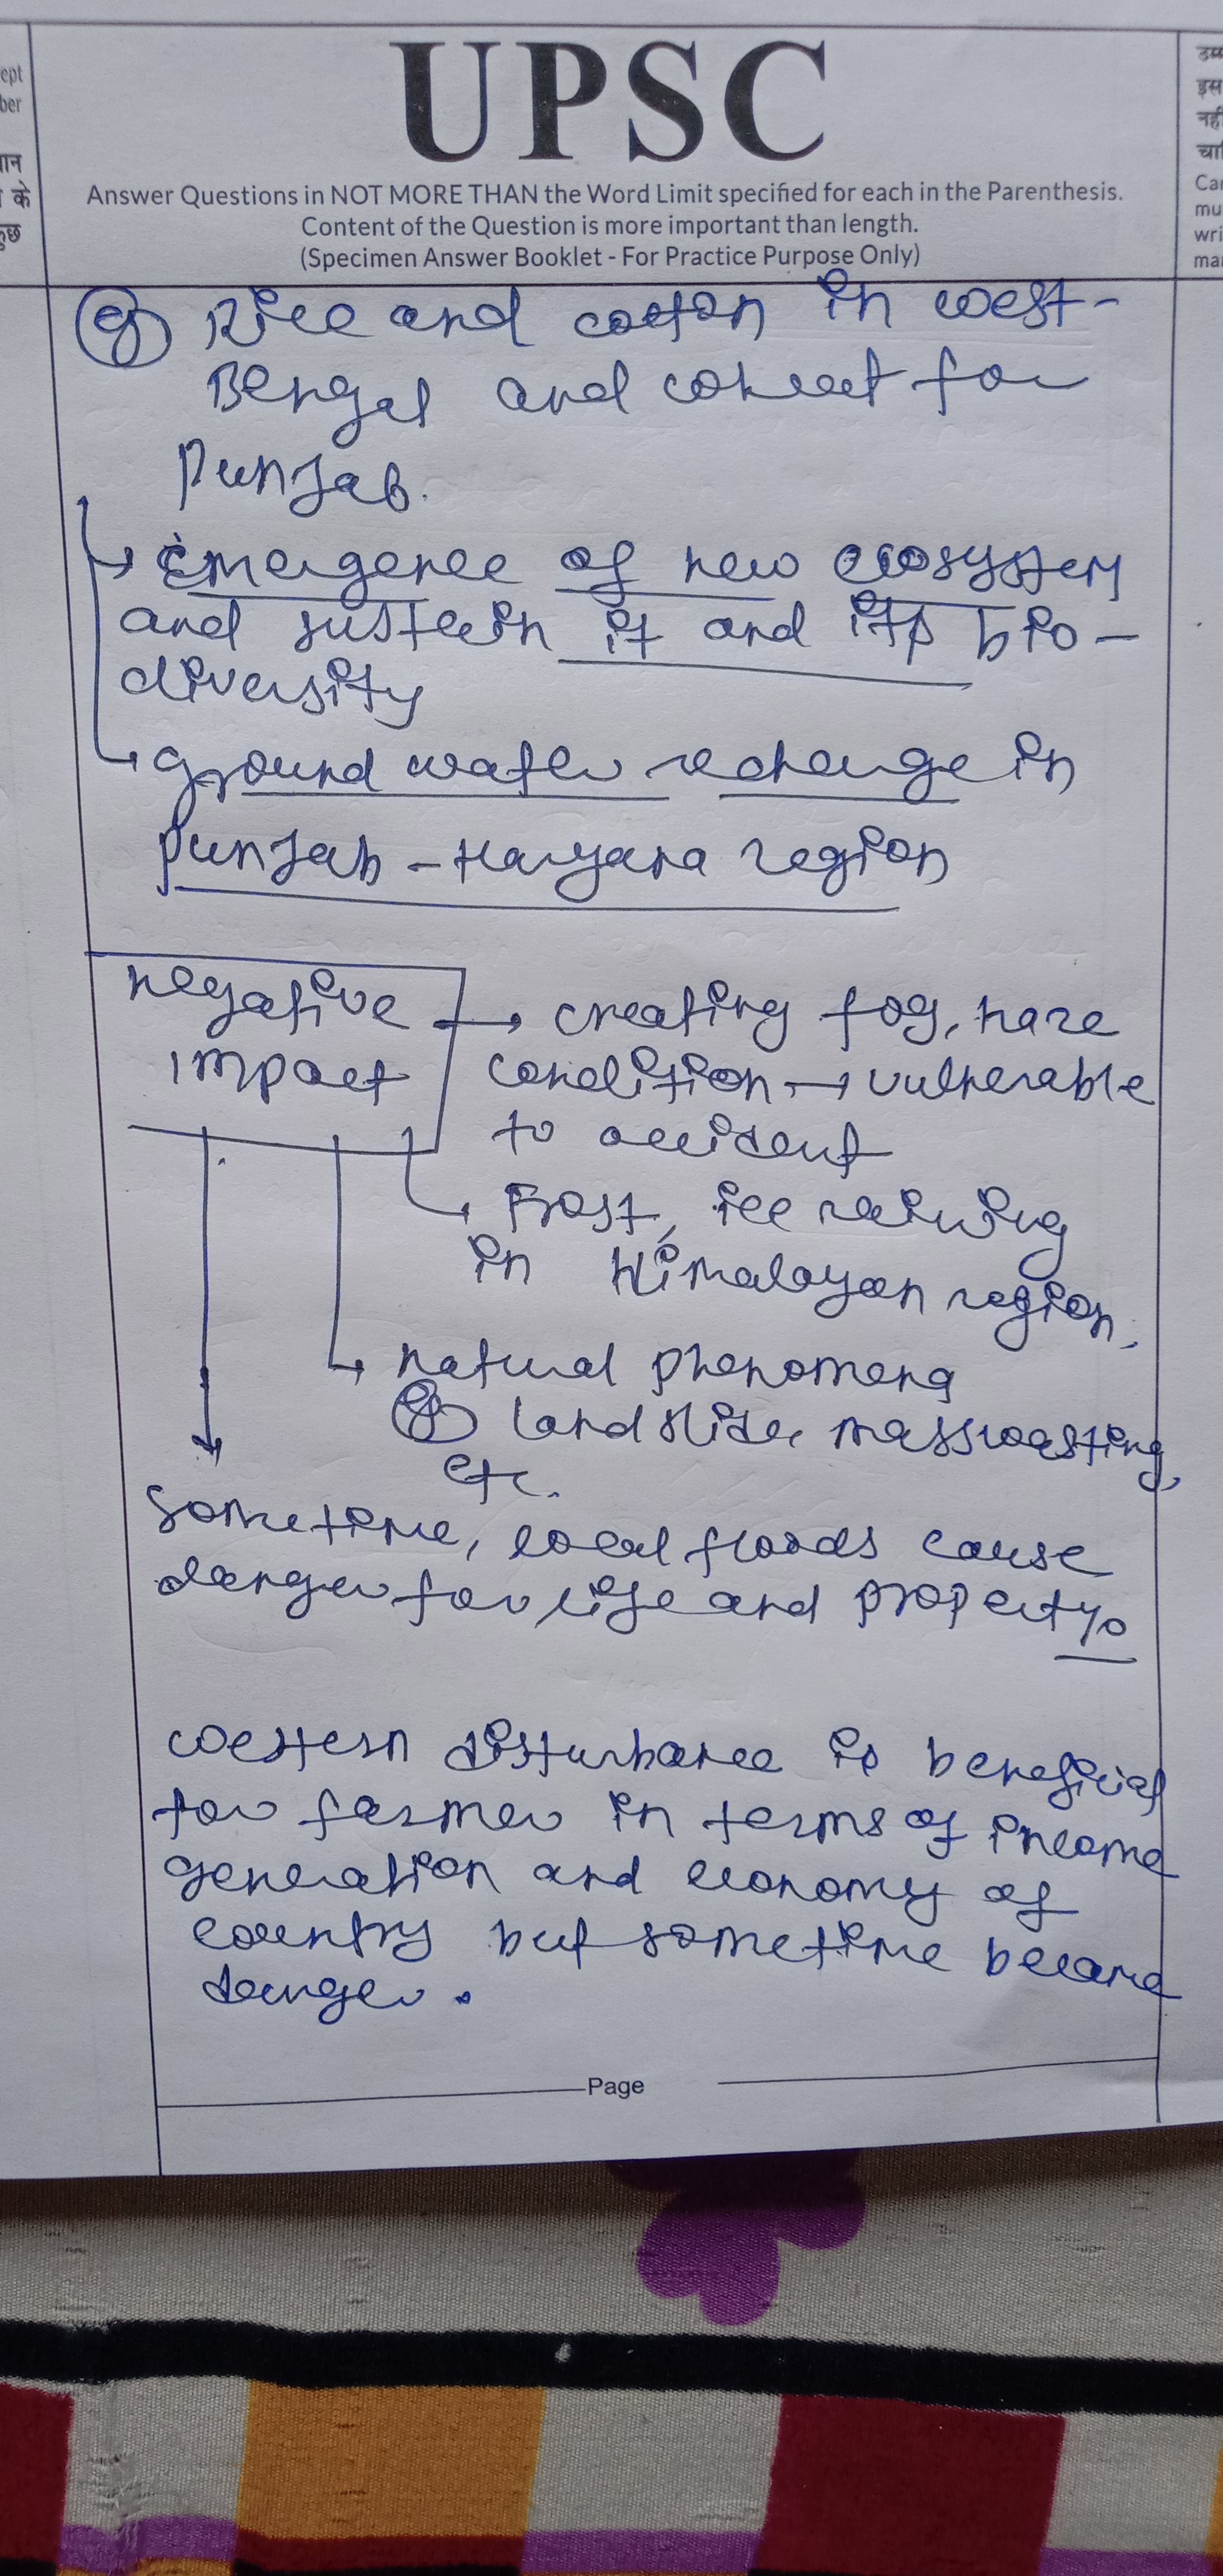 UPSC
Answer Questions in NOT MORE THAN the Word Limit specified for each in the Parenthesis.
Content of the Question is more important than length.
(Specimen Answer Booklet - For Practice Purpose Only)
eg Rice and cotton in west-
Bengal and wheat for
Punjab.
→ Emergence of new ecosystem
and sustain it and its bio-
diversity
→ ground water recharge in
Punjab - Haryana region
negative → creating fog, haze
impact condition → vulnerable
to accident
→ Frost, ice raining
in Himalayan region,
→ natural phenomena
eg landslide, masswasting,
etc.
sometime, local floods cause
danger for life and property.
western disturbance is beneficial
for farmer in terms of income
generation and economy of
country but sometime became
danger.
Page